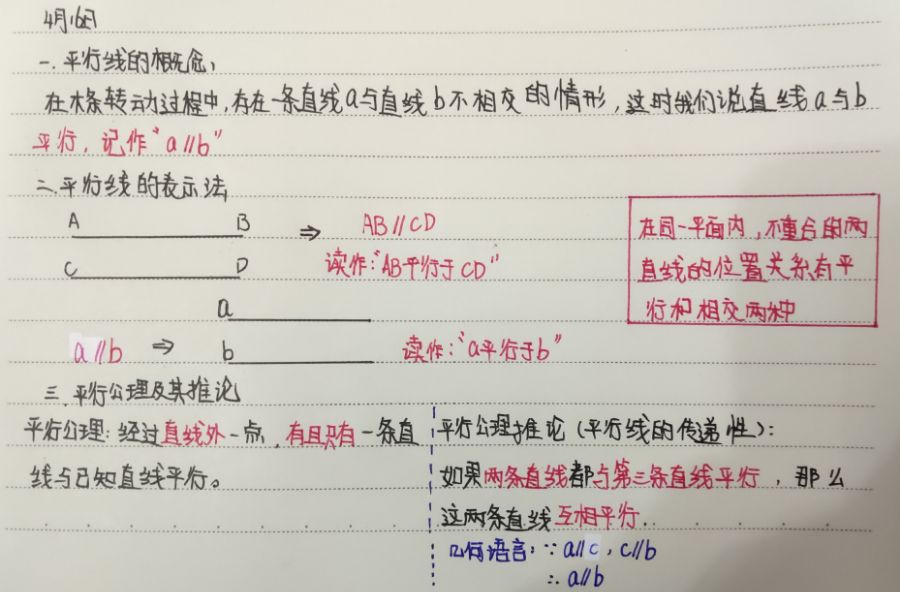 4月16日
一.平行线的概念,
在木条转动过程中,存在一条直线a与直线b不相交的情形,这时我们说直线a与b
平行,记作"a∥b"
二.平行线的表示法
A B
C D
⇒ AB∥CD
读作:"AB平行于CD"
在同一平面内,不重合的两
直线的位置关系有平
行和相交两种
a
a∥b ⇒ b 读作:"a平行于b"
三.平行公理及其推论
平行公理:经过直线外一点,有且只有一条直
线与已知直线平行。
平行公理推论(平行线的传递性):
如果两条直线都与第三条直线平行,那么
这两条直线互相平行.
几何语言:∵a∥c,c∥b
∴a∥b